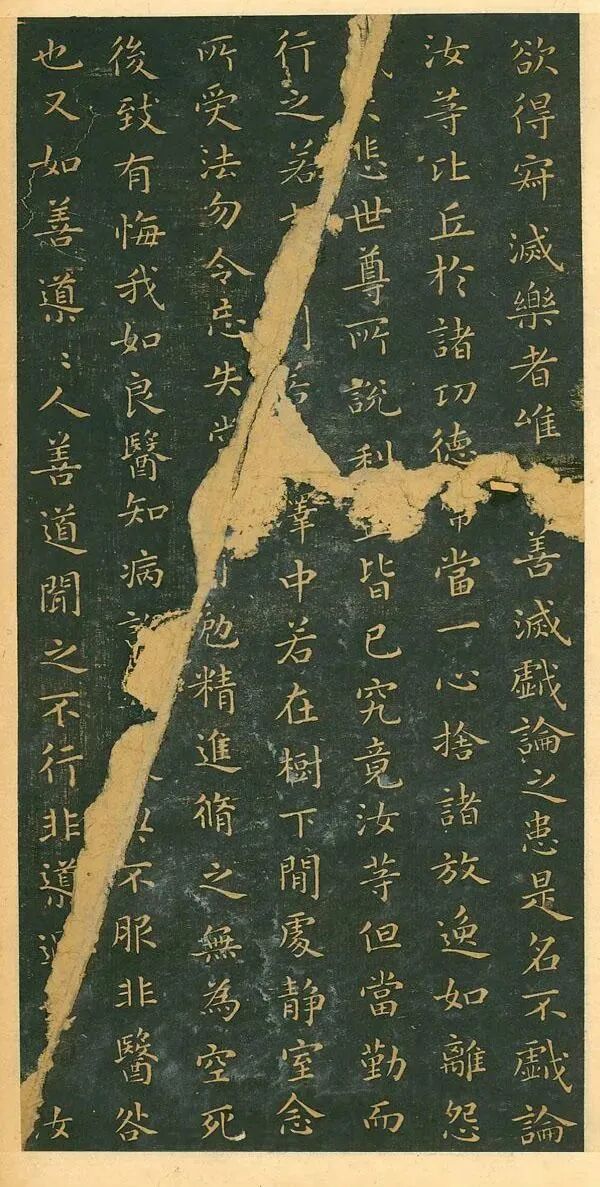 欲得寂滅樂者唯善滅戯論之患是名不戯論
汝等比丘於諸功德當一心捨諸放逸如離怨
悲世尊所說利皆已究竟汝等但當勤而
行之若中若在樹下閒處靜室念
所受法勿令忘失勉精進脩之無為空死
後致有悔我如良醫知病不服非醫咎
也又如善導〻人善道聞之不行非導汝